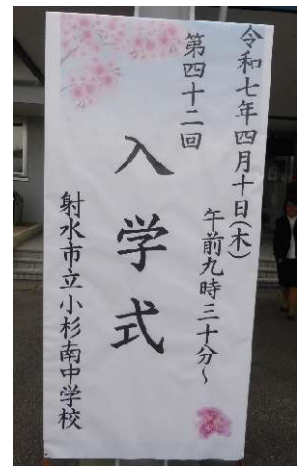 令和七年四月十日(木)
午前九時三十分～
第四十二回
入学式
射水市立小杉南中学校